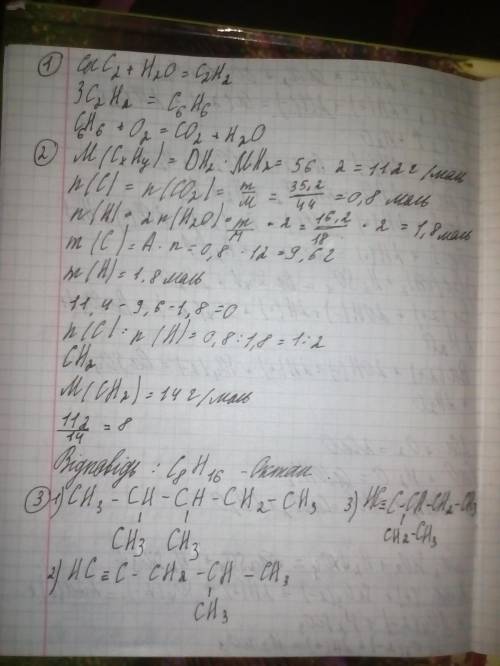 ① CaC₂ + H₂O = C₂H₂
3C₂H₂ = C₆H₆
C₆H₆ + O₂ = CO₂ + H₂O
② M(CxHy) = DH₂ · MH₂ = 56 · 2 = 112 г/моль
n(C) = n(CO₂) = m/M = 35,2/44 = 0,8 моль
n(H) = 2n(H₂O) = m/M · 2 = 16,2/18 · 2 = 1,8 моль
m(C) = A · n = 0,8 · 12 = 9,6 г
m(H) = 1.8 моль
11,4 - 9,6 - 1,8 = 0
n(C) : n(H) = 0,8 : 1,8 = 1:2
CH₂
M(CH₂) = 14 г/моль
112/14 = 8
Відповідь : C₈H₁₆ - Октан.
③ 1) CH₃ - CH - CH - CH₂ - CH₃
CH₃ CH₃
2) HC ≡ C - CH₂ - CH - CH₃
CH₃
3) HC≡C-CH-CH₂-CH₃
CH₂-CH₃